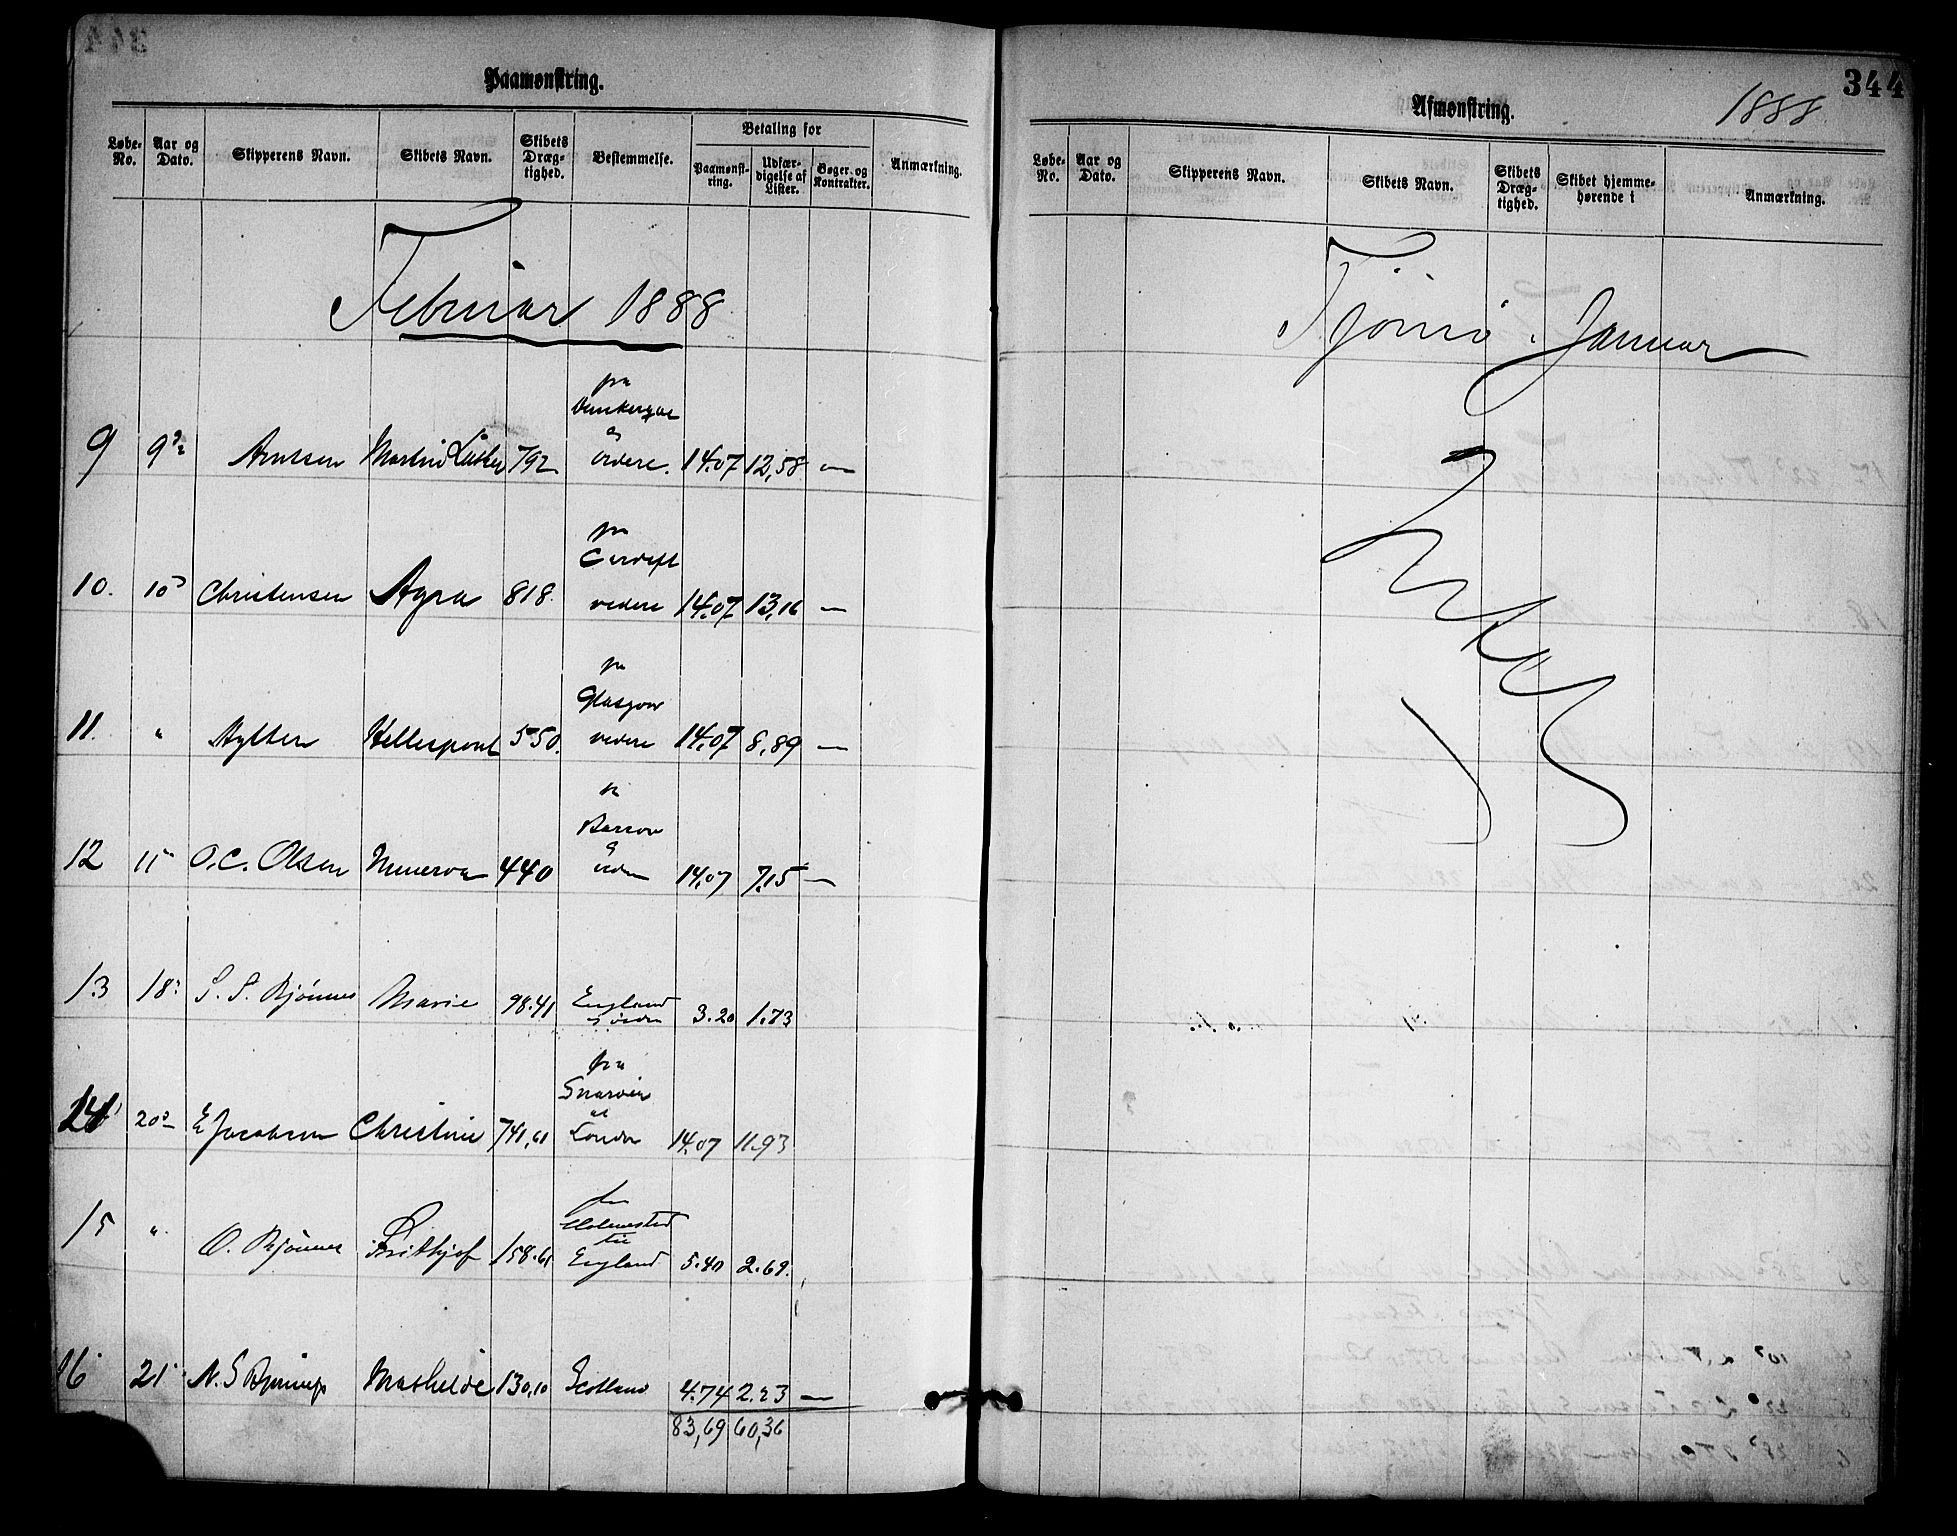 Paamønstring.
Løbe-No. Aar og Dato. Skipperens Navn. Skibets Navn. Skibets Dræg-tighed. Bestemmelse. Betaling for Paamønst-ring. Udfær-digelse af Lister. Bøger og Kontrakter. Anmærkning.
Februar 1888
fra
9 9 Arntsen Martin Luther 792 ordre. 14.07 12,58 —
fra
Cardiff
10. 10 Christensen Agra 818. videre 14.07 13,16 —
fra
Glasgow
11. " Hytten Hellespont 550. videre 14.07 8,89 —
fra
Barrow
12 15 O. C. Olsen Minerva 440 ordre 14,07 7,15 —
13 18 S. S. Bjønnes Marie 98.41 England 3.20 1.73
fra
14 20 E Jacobsen Christine 741,61 London 14.07 11.93
fra
Holmestrand
til
15 " O. Bjønnes Frithjof 158.61 England 5.40 2.69.
16 21 N. S Bjønnes Mathilde 130,10 Scotland 4.74 2.23 —
83,69 60,36
344
Afmønstring.
1888
Løbe-No. Aar og Dato. Skipperens Navn. Skibets Navn. Skibets Dræg-tighed. Skibet hjemme-hørende i Anmærkning.
Tjømø i Januar